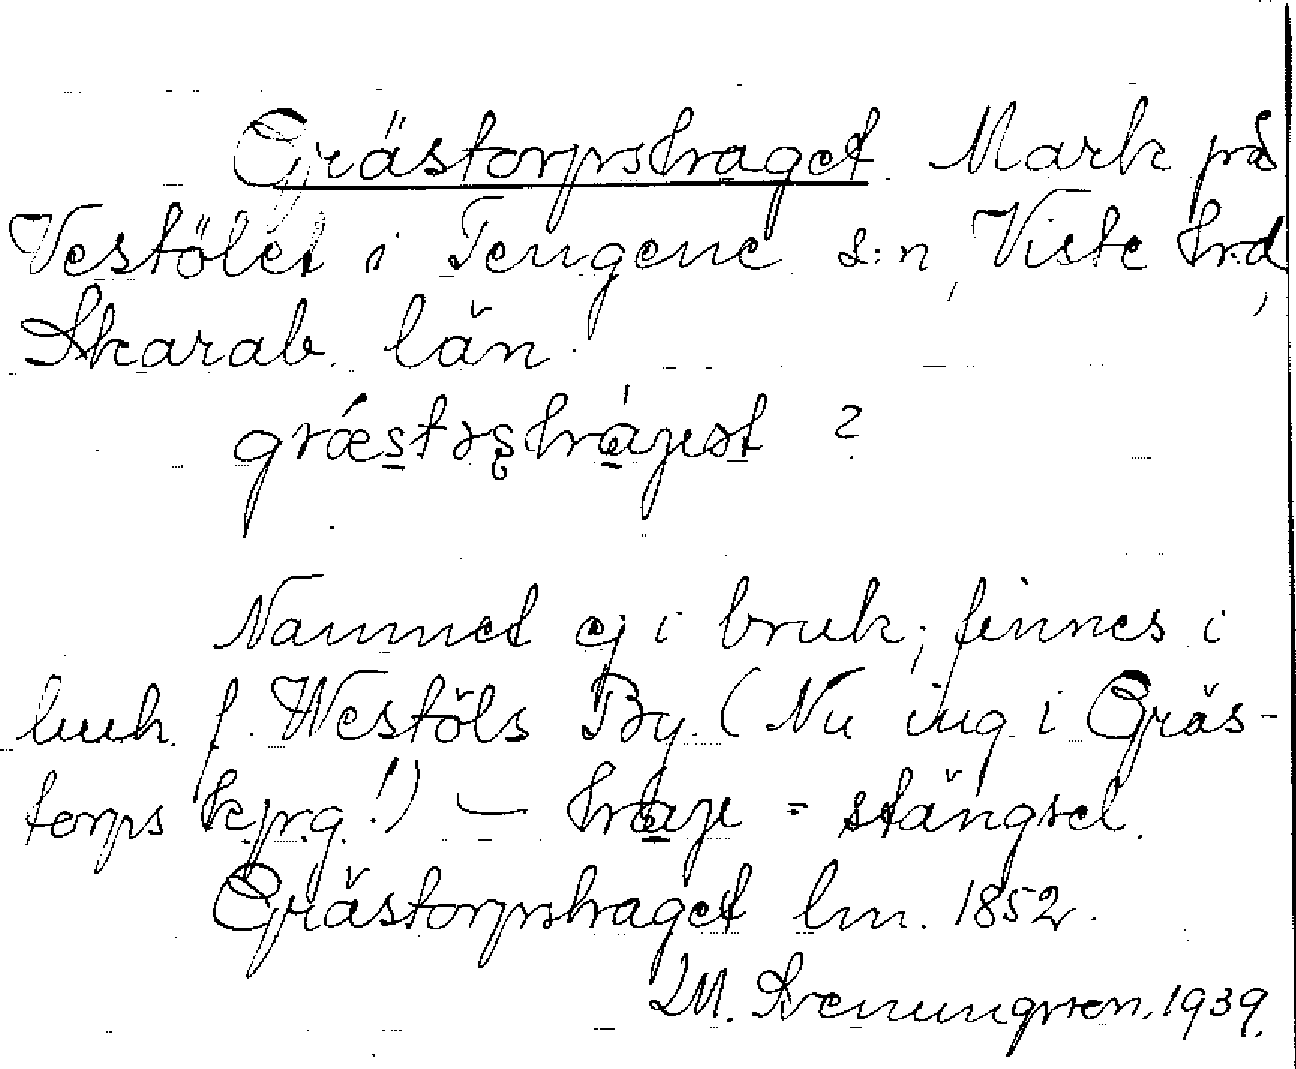 Grästorpshaget. Mark på
Vestölet i Tengene s:n, Viste hrd,
Skarab. län.
Namnet ej i bruk; finnes i
luuh. f. Westöls By. (Nu ing. i Gräs-
torps kpg.!) — = stängsel.
Grästorpshaget lm. 1852.
LM. Svenungsson. 1939.